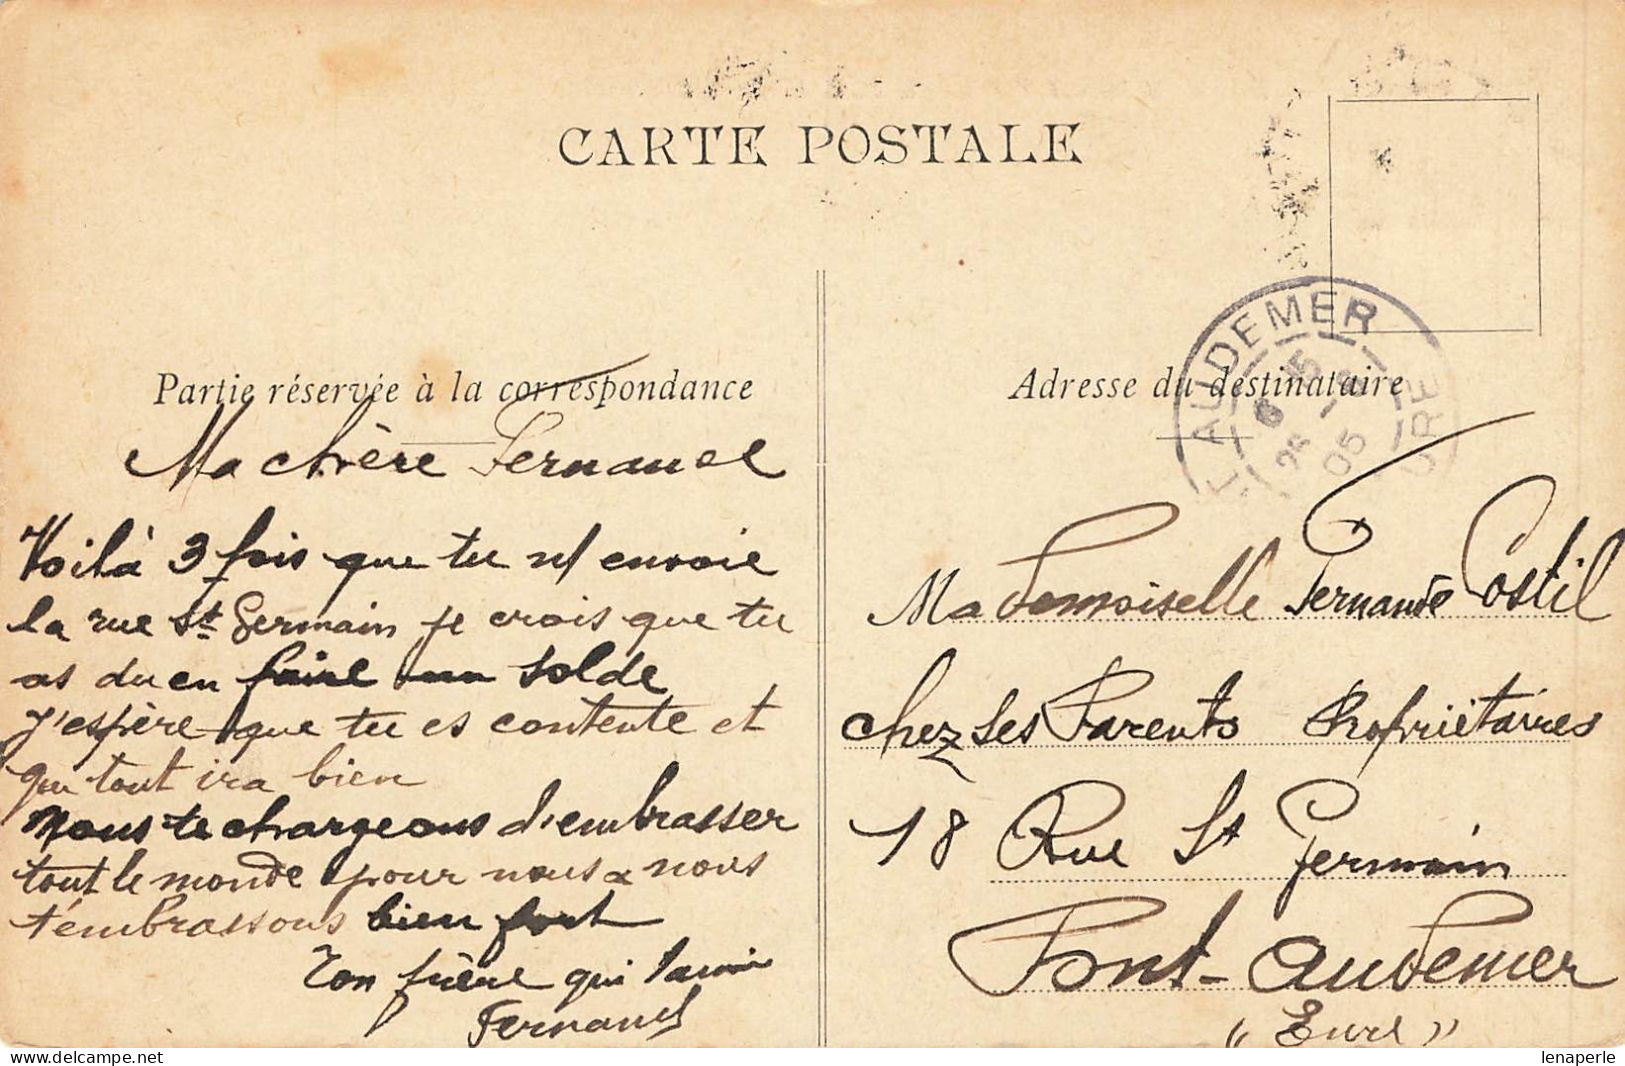 CARTE POSTALE
Partie réservée à la correspondance
Ma chère Fernande
Voilà 3 fois que tu m'envoie
la rue St Germain je crois que tu
as du en faire un solde
J'espère que tu es contente et
que tout ira bien
Nous te chargeons d'embrasser
tout le monde pour nous & nous
t'embrassons bien fort
Ton frère qui t'aime
Fernand
Adresse du destinataire
AUDEMER
05
EURE
Mademoiselle Fernande Postil
chez ses Parents Propriétaires
18 Rue St Germain
Pont-Audemer
"Eure"
delcampe.net
lenaperle